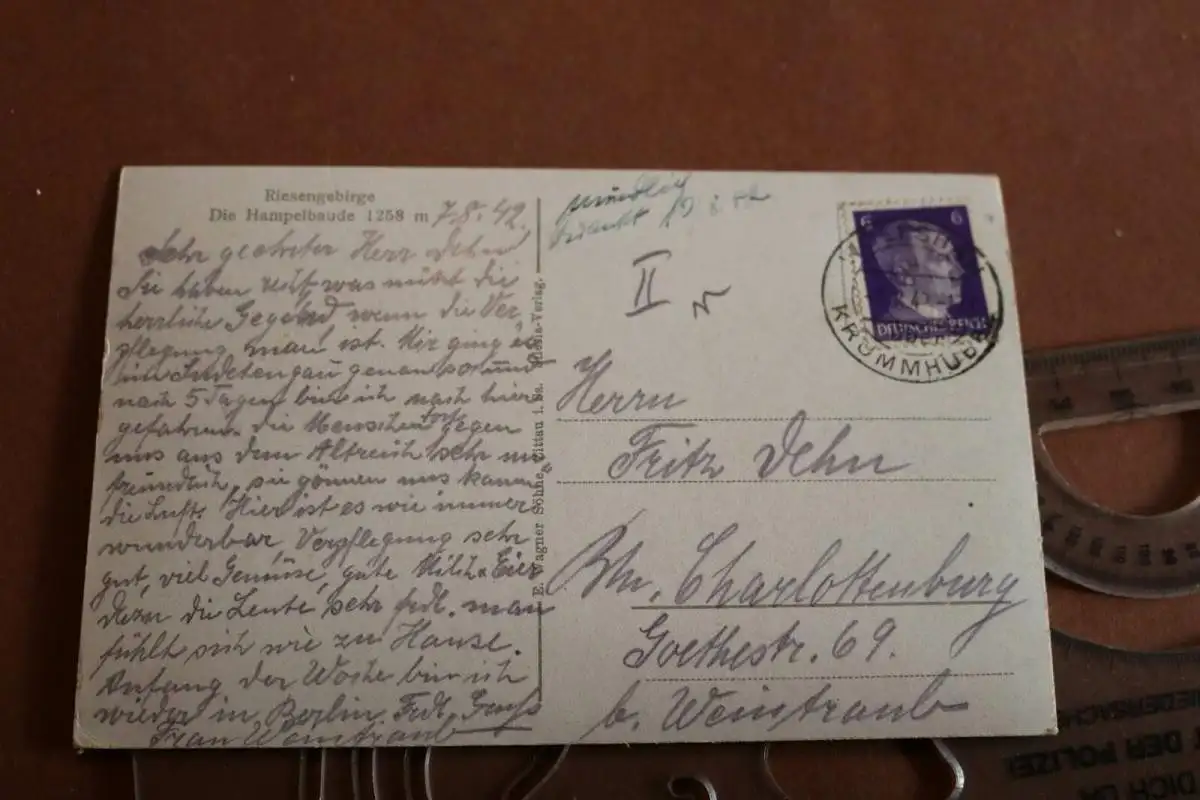 Riesengebirge
Die Hampelbaude 1258 m 7.8.42.
Sehr geehrter Herr Dehn
Sie haben recht was nützt die
herrliche Gegend wenn die Ver
pflegung mau ist. Mir ging es
im Sudetengau genau so und
nach 5 Tagen bin ich nach hier
gefahren. Die Menschen dort gegen
uns aus dem Altreich sehr un
freundlich, sie gönnen uns kaum
die Luft. Hier ist es wie immer
wunderbar Verpflegung sehr
gut, viel Gemüse, gute Milch u Eier
dazu die Leute sehr frdl. man
fühlt sich wie zu Hause.
Anfang der Woche bin ich
wieder in Berlin. Frdl. Gruß
Frau Weintraub
E. Wagner Söhne, Zittau i. Sa.
-Verlag.
mündlich
II
6 6
DEUTSCHES REICH
KRUMMHÜBEL
Herrn
Fritz Dehn
Bln. Charlottenburg
Goethestr. 69.
b. Weintraub
NIEDERSACHS
DER POLIZEI
DICH DA